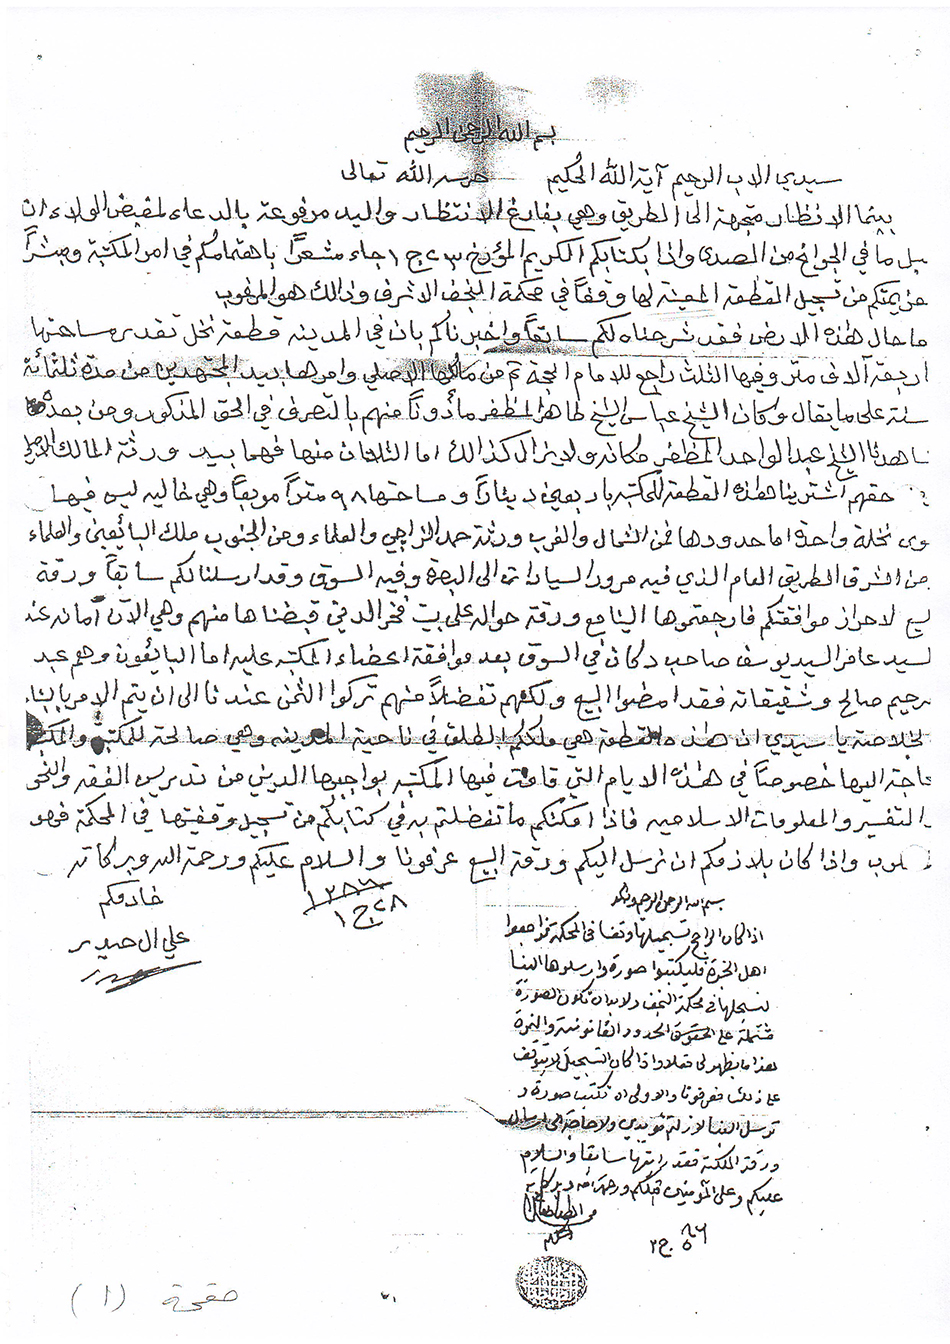 بسم الله الرحمن الرحيم
سيدي الاب الرحيم آية الله الحكيم حرسه الله تعالى
بينما الانظار متجهة الى الطريق وهي بفارغ الانتظار واليد مرفوعة بالدعاء لمقبض الولاء ان
يبل ما في الجوانح من الصدى واذا بكتابكم الكريم المؤرخ ٢٣ ج١ جاء مشعراً باهتمامكم في امر المكتبة ومبشراً
عزيمتكم من تسجيل القطعة المعينة لها وقفاً في محكمة النجف الاشرف وذالك هو المرغوب
ما حال هذه الارض فقد شرحناه لكم سابقاً واخبرناكم بان في المدينه قطعة نخل تقدير مساحتها
اربعة آلاف متر وفيها الثلث راجع للامام الحجة ثم من مالكها الاصلي وامرها بيد المجتهدين من مدة ثلثمائة
سنة على ما يقال وكان الشيخ عباس الشيخ طاهر المظفر مأذوناً منهم بالتصرف في الحق المذكور ومن بعده
ناهدنا الشيخ عبد الواحد المظفر مكانه ولا يزال كذالك اما الثلثان منها فهما بيد ورثة المالك الاصلي
حقهم اشترينا هذه القطعة للمكتبه باربعين ديناراً ومساحتها ٩٨ متراً مربعاً وهي خاليه ليس فيها
وى نخلة واحدة اما حدودها فمن الشمال والغرب ورثة حمد الراجي والعلماء ومن الجنوب ملك البائعين والعلماء
ومن الشرق الطريق العام الذي فيه مرور السيارات الى البصرة وفيه السوق وقد ارسلنا لكم سابقاً ورقة
بيع لاحراز موافقتكم فارجعتموها الينا مع ورقة حواله على بيت فخر الدين قبضناها منهم وهي الآن أمانه عند
لسيد عامر السيد يوسف صاحب دكان في السوق بعد موافقة اعضاء المكتبه عليه اما البائعون وهم عبد
رحيم صالح وشقيقاته فقد امضوا البيع ولكنهم تفضلاً منهم تركوا الثمن عندنا الى ان يتم الامر بالبناء
لخلاصة يا سيدي ان هذه القطعة هي ملككم الطلق في ناحية المدينه وهي صالحة للمكتبة والمكتبة
حاجة اليها خصوصاً في هذه الايام التي قامت فيها المكتبه بواجبها الديني من تدريس الفقه والنحو
والتفسير والمعلومات الاسلاميه فاذا امكنكم ما تفضلتم به في كتابكم من تسجيل وقفيتها في المحكمة فهو
لوب واذا كان بلازمكم ان نرسل اليكم ورقة البيع عرفونا والسلام عليكم ورحمة الله وبركاته
٢٨ ج١
خادمكم
علي ال حيدر
بسم الله الرحمن الرحيم
اذا كان الراجح تسجيلها وقفا في المحكمة فراجعوا
اهل الخبرة فليكتبوا صورة وارسلوها الينا
لنسجلها في محكمة النجف ولا بد ان تكون الصورة
مشتملة على الحقوق الحدود القانونية
هذا ما يظهر لي فعلا واذا كان التسجيل لا يتوقف
على ذلك فعرفونا والاولى ان تكتب صورة و
ترسل الينا ولا حاجة الى ارسال
ورقة الملكية فقد رأيتها سابقا والسلام
عليكم وعلى المؤمنين قبلكم ورحمة الله وبركاته
محسن الطباطبائي
الحكيم
ج٢
صفحة (١)